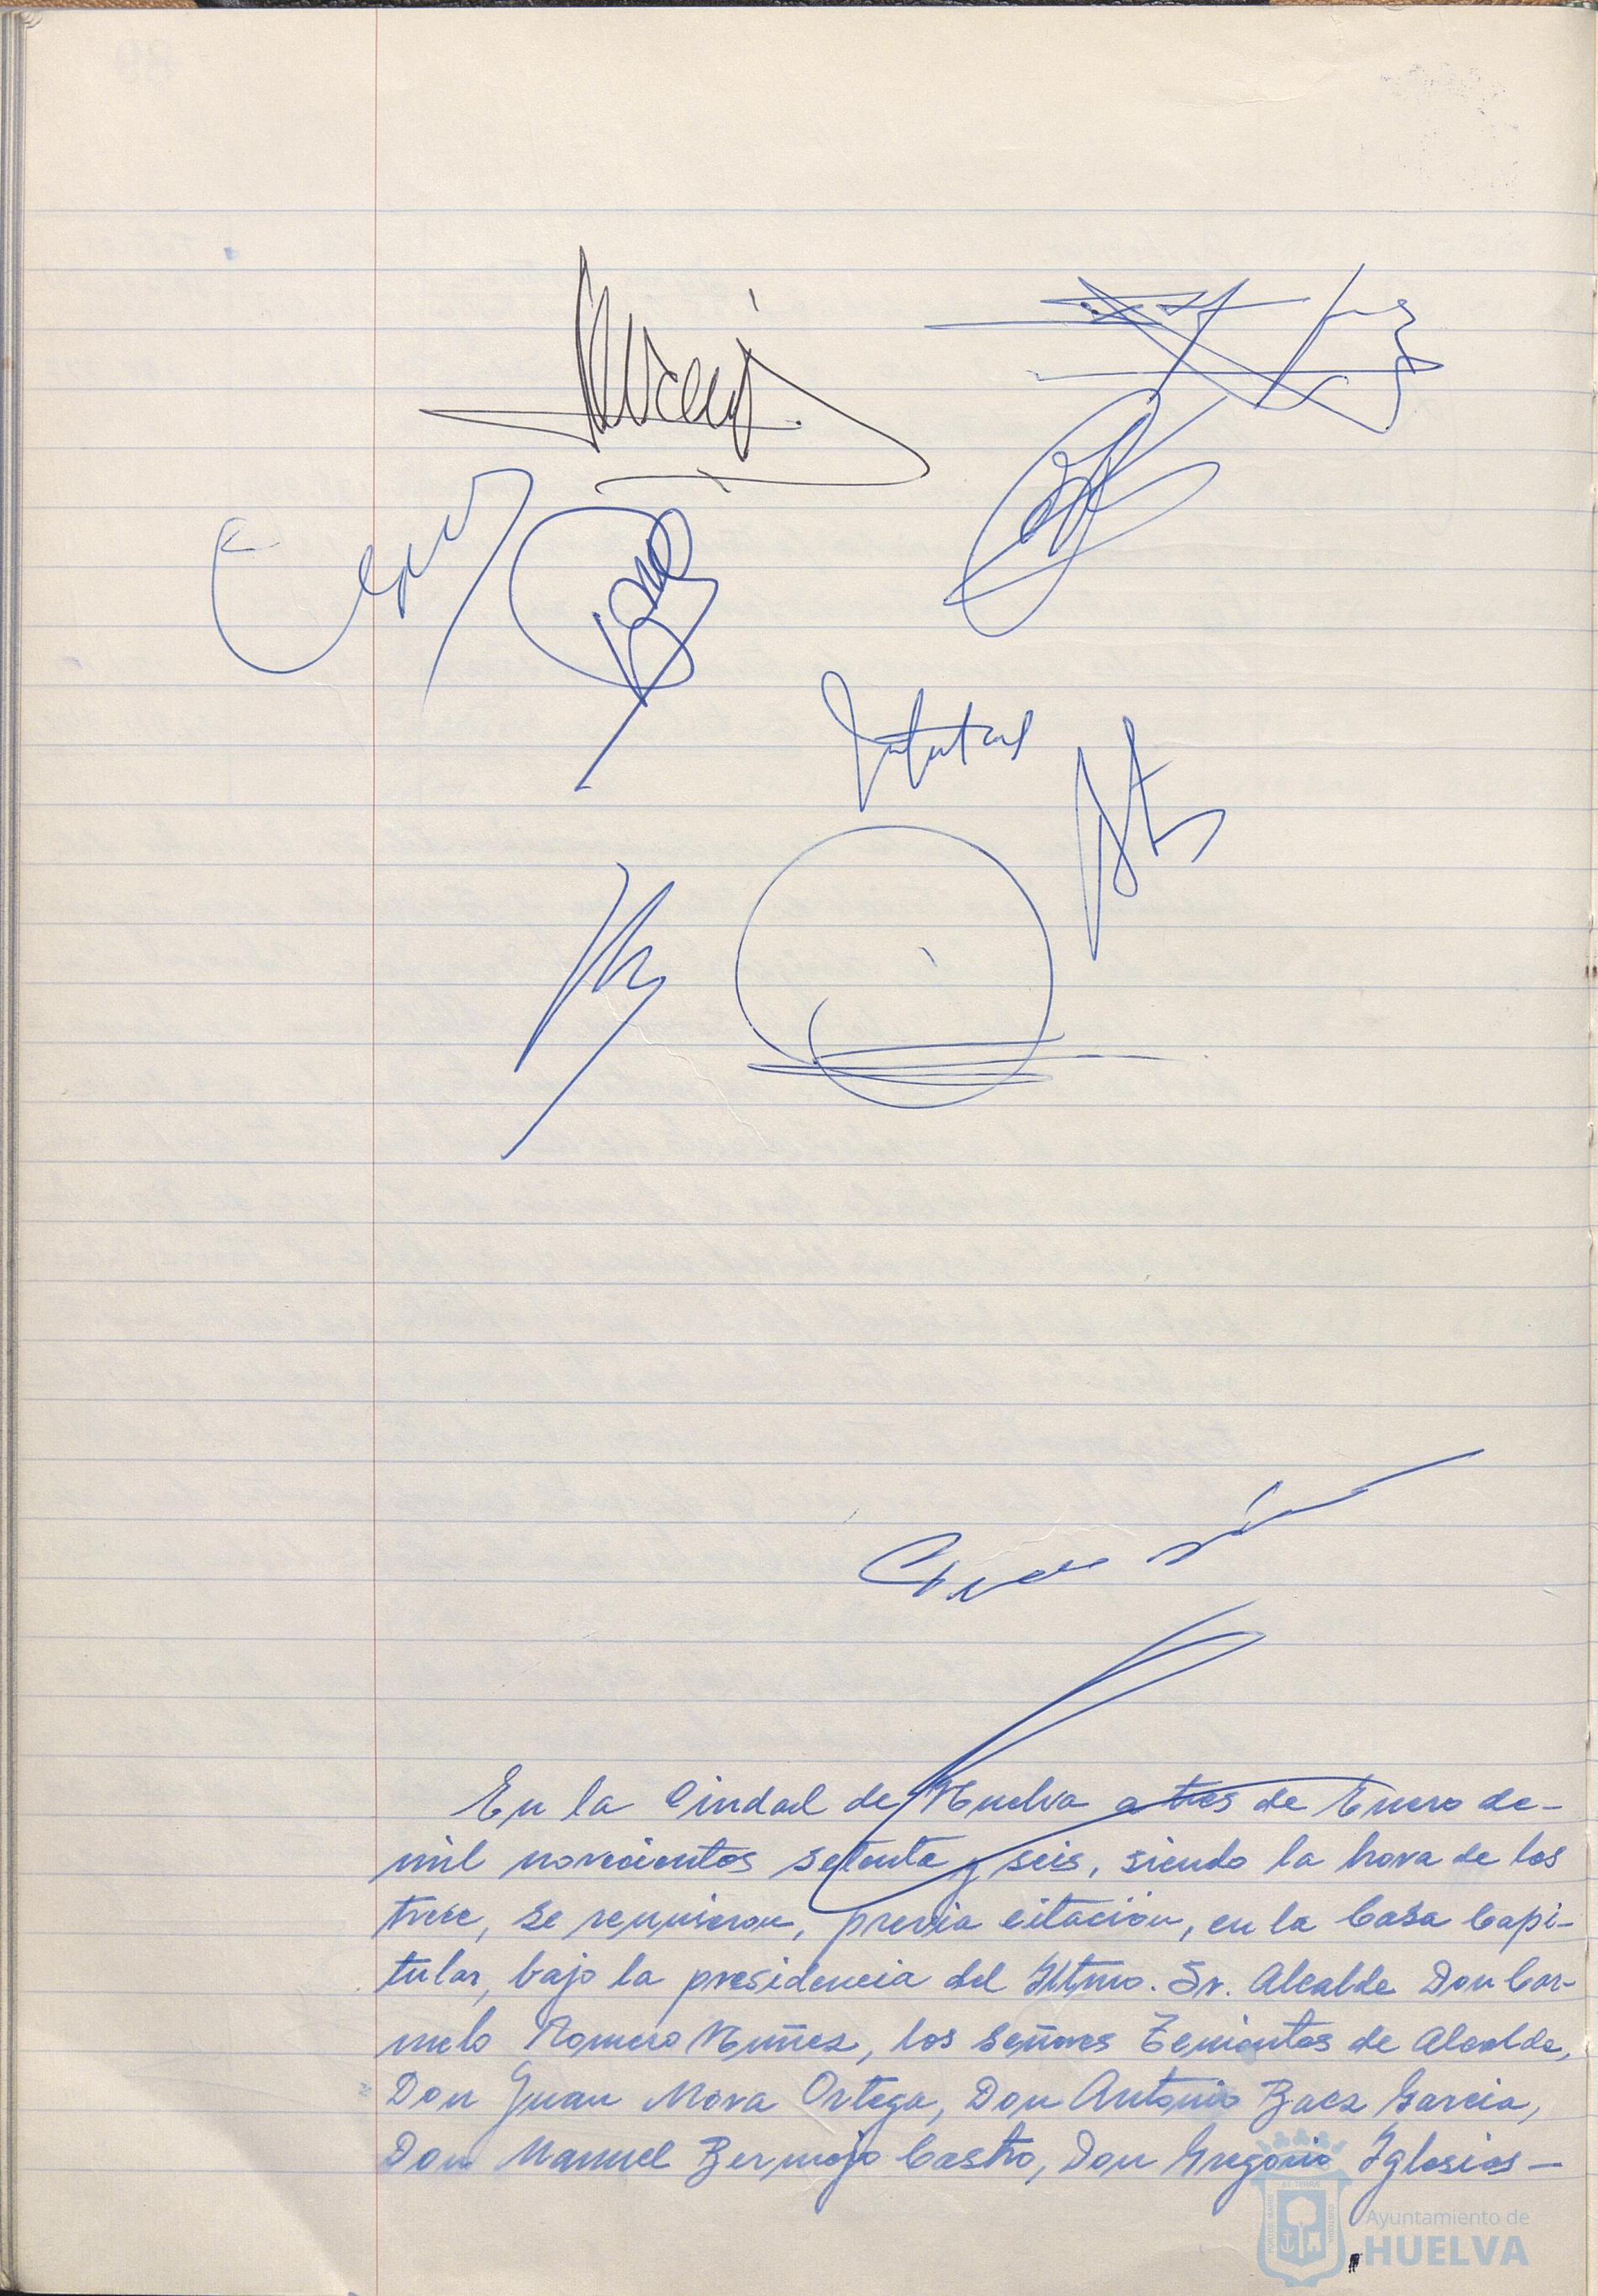 En la Ciudad de Huelva a tres de Enero de-
mil novecientos setenta y seis, siendo la hora de las
trece, se reunieron, previa citación, en la Casa Capi-
tular, bajo la presidencia del Iltmo. Sr. Alcalde Don Car-
melo Romero Núñez, los señores Tenientes de Alcalde,
Don Juan Mora Ortega, Don Antonio Baez Garcia,
Don Manuel Bermejo Castro, Don Gregorio Iglesias-
Ayuntamiento de
HUELVA